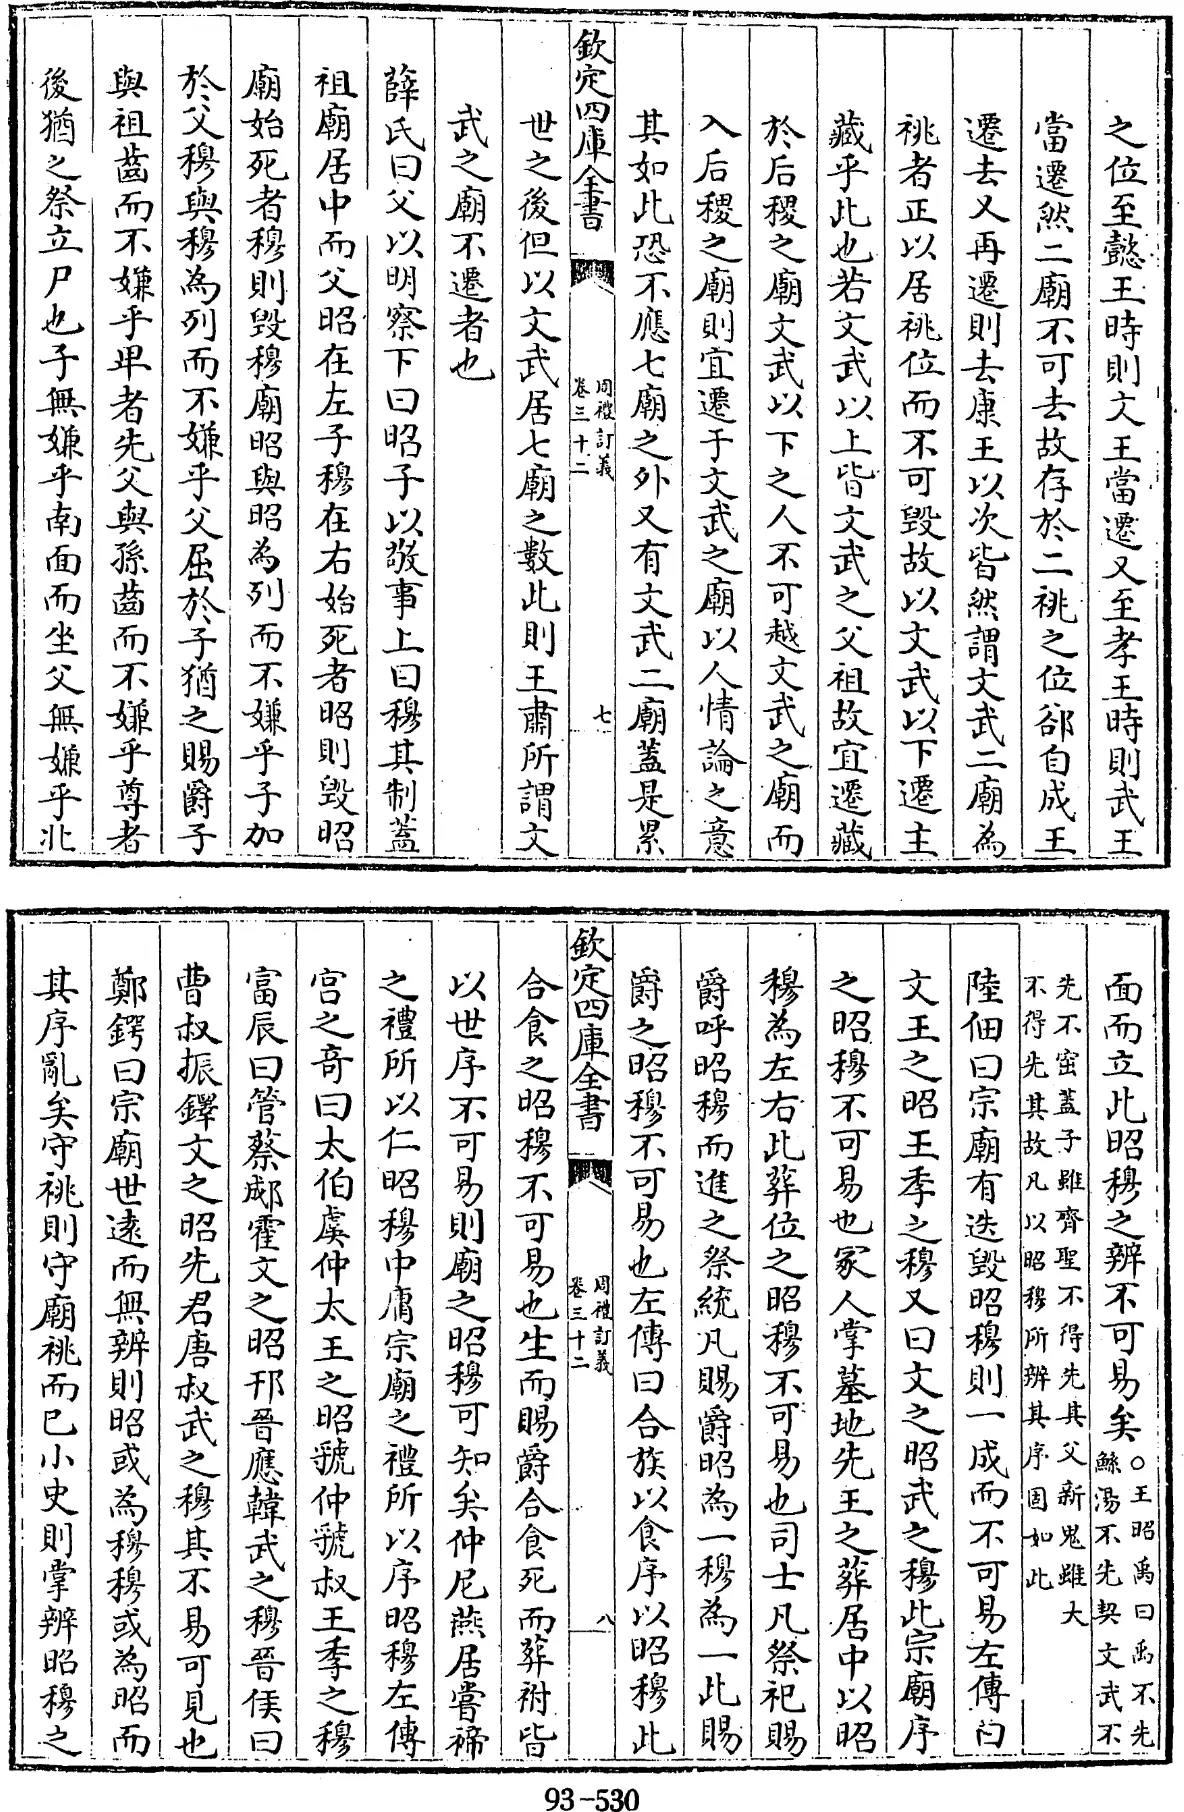 之位至懿王時則文王當遷又至孝王時則武王
當遷然二廟不可去故存於二祧之位郤自成王
遷去又再遷則去康王以次皆然謂文武二廟為
祧者正以居祧位而不可毀故以文武以下遷主
藏乎此也若文武以上皆文武之父祖故宜遷藏
於后稷之廟文武以下之人不可越文武之廟而
入后稷之廟則宜遷于文武之廟以人情論之意
其如此恐不應七廟之外又有文武二廟蓋是累
欽定四庫全書
周禮訂義
卷三十二
七
世之後但以文武居七廟之數此則王肅所謂文
武之廟不遷者也
薛氏曰父以明察下曰昭子以敬事上曰穆其制蓋
祖廟居中而父昭在左子穆在右始死者昭則毀昭
廟始死者穆則毀穆廟昭與昭為列而不嫌乎子加
於父穆與穆為列而不嫌乎父屈於子猶之賜爵子
與祖齒而不嫌乎卑者先父與孫齒而不嫌乎尊者
後猶之祭立尸也子無嫌乎南面而坐父無嫌乎北
面而立此昭穆之辨不可易矣○王昭禹曰禹不先
鯀湯不先契文武不
先不窋蓋子雖齊聖不得先其父新鬼雖大
不得先其故凡以昭穆所辨其序固如此
陸佃曰宗廟有迭毀昭穆則一成而不可易左傳曰
文王之昭王季之穆又曰文之昭武之穆此宗廟序
之昭穆不可易也冢人掌墓地先王之葬居中以昭
穆為左右此葬位之昭穆不可易也司士凡祭祀賜
爵呼昭穆而進之祭統凡賜爵昭為一穆為一此賜
爵之昭穆不可易也左傳曰合族以食序以昭穆此
欽定四庫全書
周禮訂義
卷三十二
八
合食之昭穆不可易也生而賜爵合食死而葬祔皆
以世序不可易則廟之昭穆可知矣仲尼燕居嘗禘
之禮所以仁昭穆中庸宗廟之禮所以序昭穆左傳
宮之奇曰太伯虞仲太王之昭虢仲虢叔王季之穆
富辰曰管蔡郕霍文之昭邘晉應韓武之穆晉侯曰
曹叔振鐸文之昭先君唐叔武之穆其不易可見也
鄭鍔曰宗廟世遠而無辨則昭或為穆穆或為昭而
其序亂矣守祧則守廟祧而已小史則掌辨昭穆之
93-530